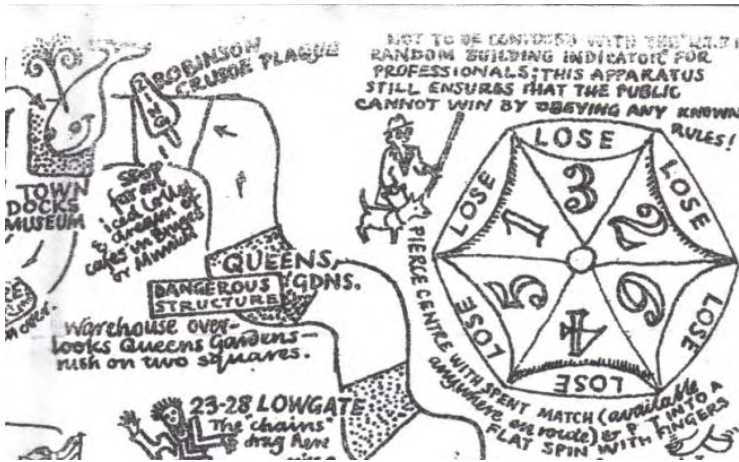 ROBINSON
CRUSOE PLAQUE
ZING
Stop
for an
iced lolly
& dream of
cafes in Bruges
or Munich
TOWN
DOCKS
MUSEUM
QUEENS,
GDNS.
DANGEROUS
STRUCTURE
Warehouse over-
looks Queens Gardens—
rush on two squares.
23-28 LOWGATE
The "chains"
drag here
NOT TO BE CONFUSED WITH THE
RANDOM BUILDING INDICATOR FOR
PROFESSIONALS; THIS APPARATUS
STILL ENSURES THAT THE PUBLIC
CANNOT WIN BY OBEYING ANY KNOWN
RULES!
LOSE
LOSE
LOSE
LOSE
LOSE
LOSE
1 3 2
5 4 6
PIERCE CENTRE WITH SPENT MATCH (available
anywhere on route) & P. T INTO A
FLAT SPIN WITH FINGERS